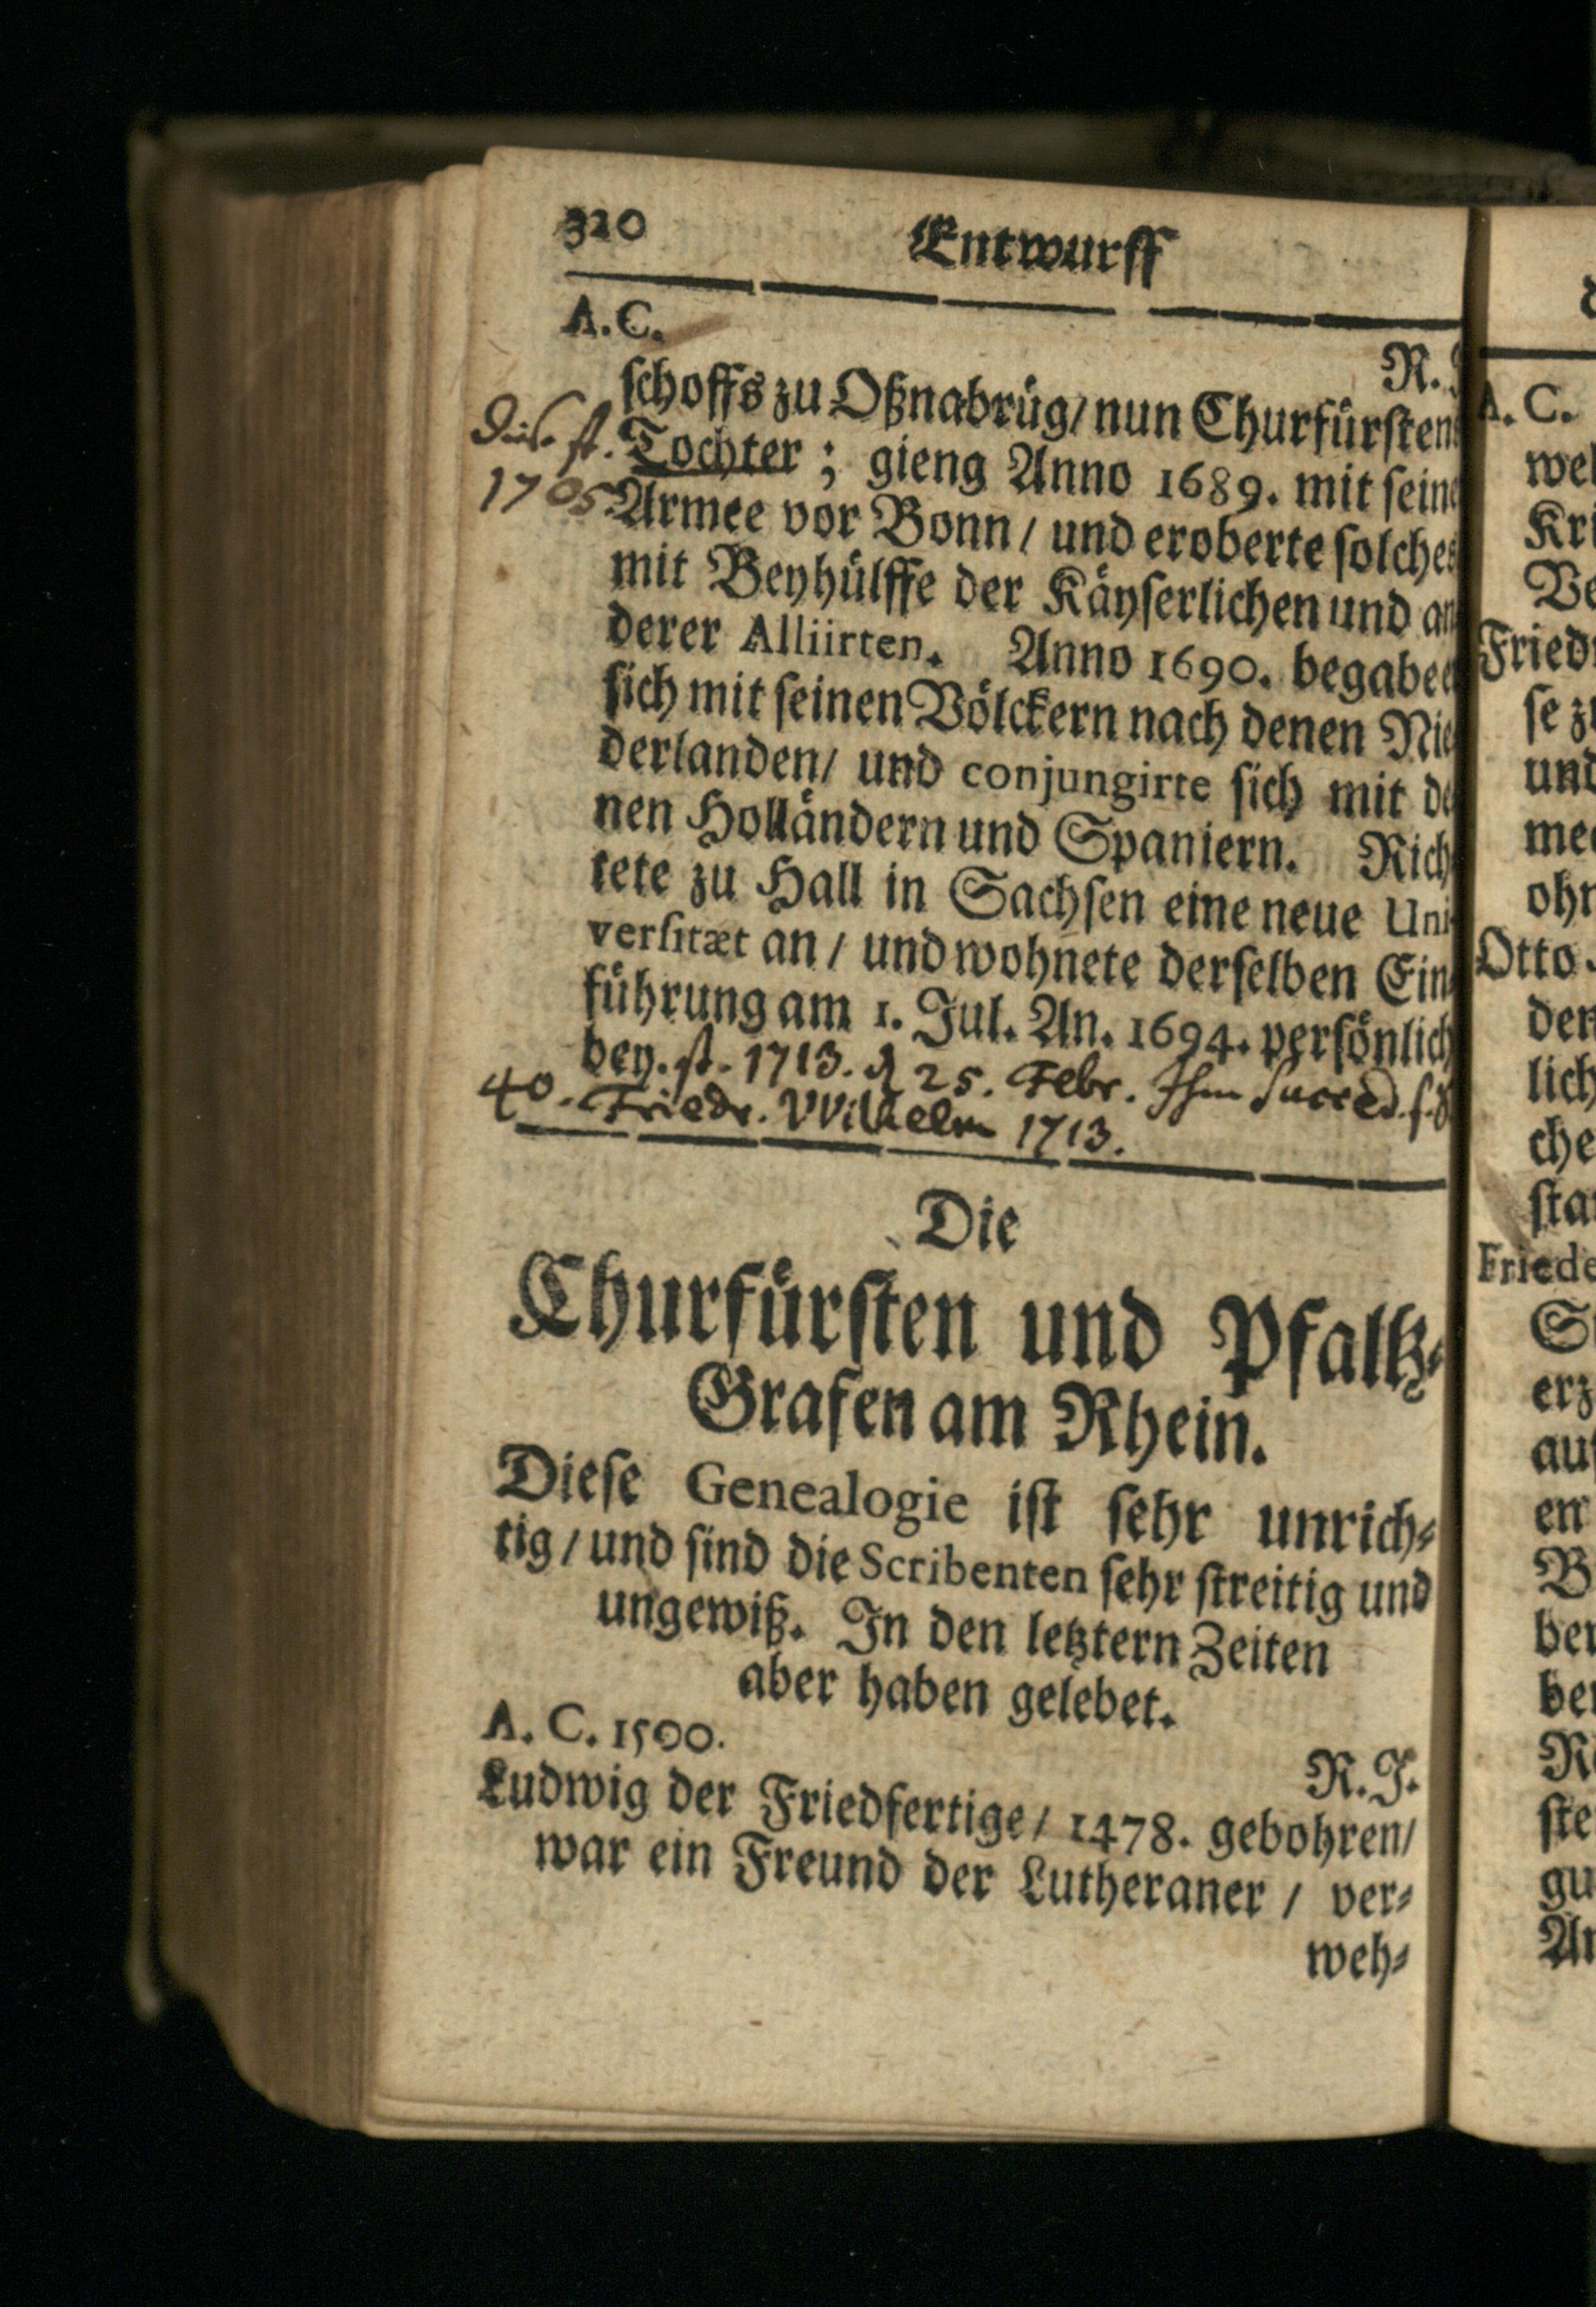 320 Entwurff
A. C. R.
schoffs zu Oßnabrüg/ nun Churfürsten
Dise st. Tochter ; gieng Anno 1689. mit seine
1705. Armee vor Bonn / und eroberte solches
mit Beyhülffe der Käyserlichen und an
derer Alliirten. Anno 1690. begab
sich mit seinen Völckern nach denen Nie
derlanden/ und conjungirte sich mit de
nen Holländern und Spaniern. Rich
tete zu Hall in Sachsen eine neue Uni-
versitæt an / und wohnete derselben Ein-
führung am 1. Jul. An. 1694. persönlich
bey. st. 1713. d 25. Febr. Ihm succed. s.
40. Friedr. VVilhelm 1713.
Die
Churfürsten und Pfaltz-
Grafen am Rhein.
Diese Genealogie ist sehr unrich-
tig / und sind die Scribenten sehr streitig und
ungewiß. In den letztern Zeiten
aber haben gelebet.
A. C. 1500. R. J.
Ludwig der Friedfertige / 1478. gebohren/
war ein Freund der Lutheraner / ver-
weh-
A. C.
wel
Kri
Ve
Fried
se z
und
me
ohn
Otto
den
lich
che
sta
Friede
S
erz
au
en
B
ber
be
R
ste
gu
An